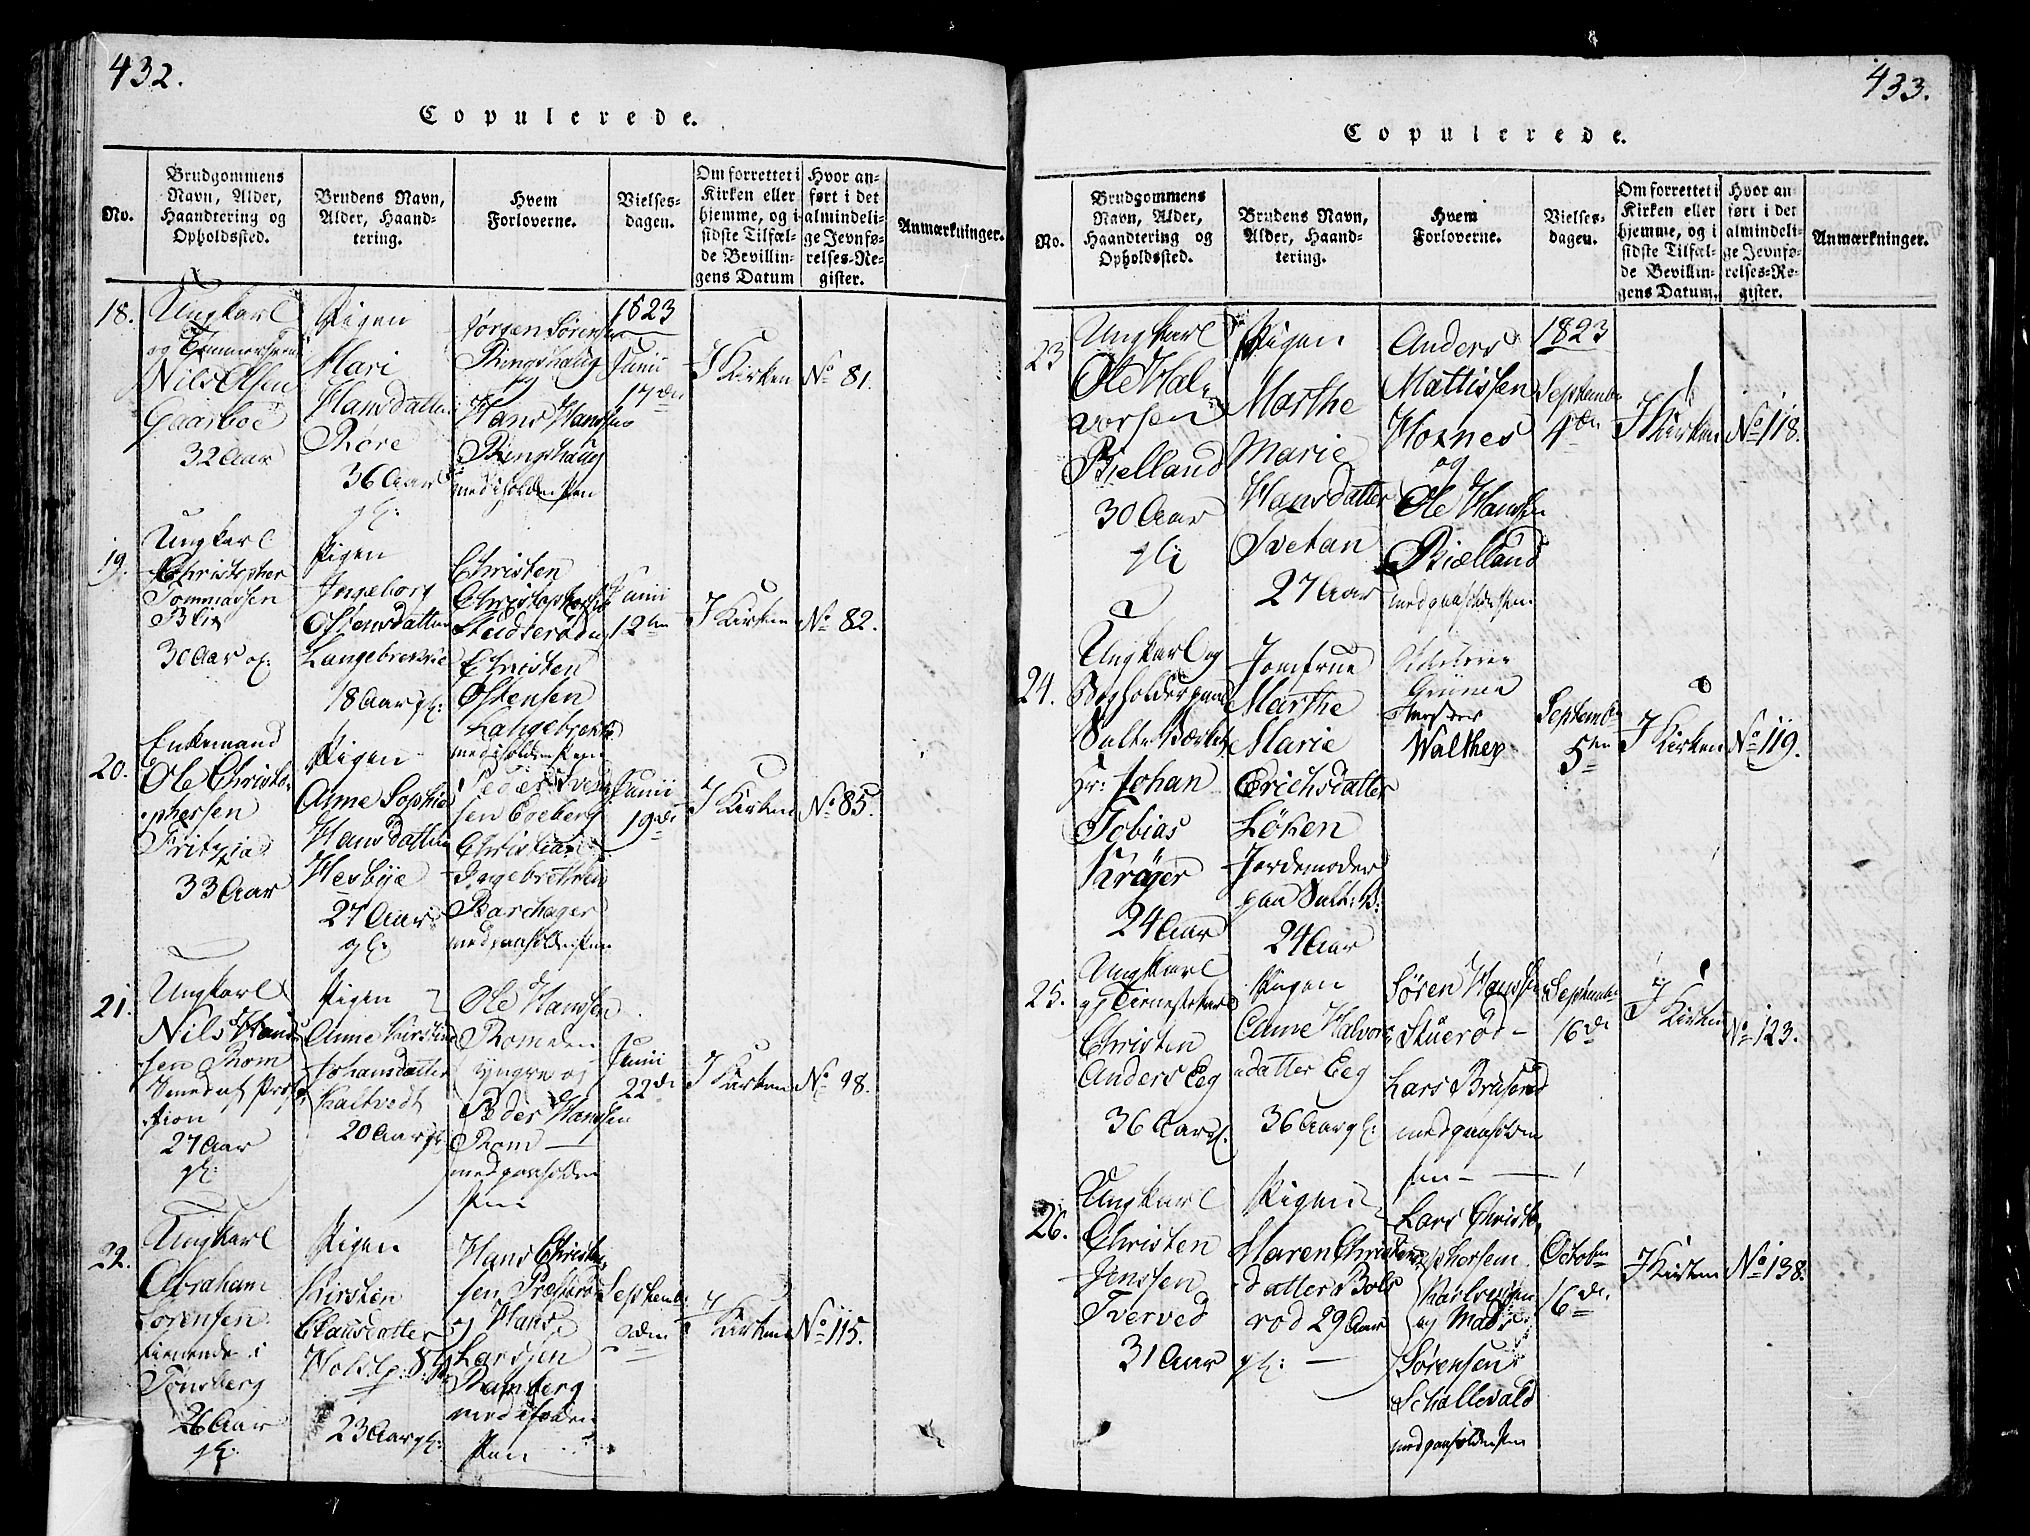 432.
Copulerede.
No.
Brudgommens
Navn, Alder,
Haandtering og
Opholdssted.
Brudens Navn,
Alder, Haand-
tering.
Hvem
Forloverne.
Vielses-
dagen.
Om forrettet i
Kirken eller
hjemme, og i
sidste Tilfæl-
de Bevillin-
gens Datum
Hvor an-
ført i det
almindeli-
ge Jevnfø-
relses-Re-
gister.
Anmærkninger.
18.
Ungkarl
og Tømmermand
Nils Olsen
Gaarboe
32 Aar
Pigen
Mari
Hansdatter
Røre
36 Aar
gl:
Jørgen Sörensen
Ringshaug
og
Hans Hanssen
Ringshaug
1823
Junii
17de
I Kirken
No 81.
19.
Ungkarl
Christopher
Tommassen
Blix
30 Aar gl:
Pigen
Ingeborg
Ostensdatter
Langebrekkie
18 Aar gl:
Christen
Christophersen
Christen
Ostensen
Langebrekke
Junii
12te
I Kirken
No 82.
20.
Enkemand
Ole Christo-
phersen
Fritzia
33 Aar
Pigen
Anne Sophia
Hansdatter
Hesbye
27 Aar
gl:
Peder Ived-
sen Eveberg
Christian
Ingebretsen
Barchager
med paaholden Pen
Junii
19de
I Kirken
No 85.
21.
Ungkarl
Nils Hans-
sen Rom
27 Aar
gl:
Pigen
Anne Kirstine
Johansdatter
Kaltvedt
20 Aar gl:
Ole Hanssen
Rom den
yngre og
Peder Hanssen
Rom
med paaholden
Pen
Junii
22de
I Kirken
No 98.
22.
Ungkarl
Abraham
Sörensen
tienende i
Tønsberg
26 Aar
gl:
Pigen
Kirsten
Clausdatter
23 Aar gl:
Hans Christen-
sen
og Hans
Larssen
Ramberg
Pen
Septembr
2den
I Kirken
No 115.
433.
Copulerede.
No.
Brudgommens
Navn, Alder,
Haandtering og
Opholdssted.
Brudens Navn,
Alder, Haand-
tering.
Hvem
Forloverne.
Vielses-
dagen.
Om forrettet i
Kirken eller
hjemme, og i
sidste Tilfæl-
de Bevillin-
gens Datum.
Hvor an-
ført i det
almindeli-
ge Jevnfø-
relses-Re-
gister.
Anmærkninger.
23
Ungkarl
Ole Hal-
vorsen
Bielland
30 Aar
gl:
Pigen
Marthe
Marie
Hansdatter
Svetan
27 Aar
Anders
Mattissen
Hoxnes
og
Ole Hanssen
Bielland
med paaholden Pen
1823
September
4de
I Kirken
No 118.
24.
Ungkarl og
Bogholder paa
Salte Værket
Hr: Johan
Tobias
Krøyer
24 Aar
Jomfrue
Marthe
Marie
Erichsdatter
Löken
Jordemoder
paa Salt: V:
24 Aar
Walther
Septembr
5te
I Kirken
No 119.
25.
Ungkarl
og Tienestekarl
Christen
Anders Eeg
36 Aar gl:
Pigen
Anne Halvors-
datter Eeg
36 Aar gl:
Søren Hanssen
Stuerød
Lars Bruserød
med paaholden
Pen
September
16de
I
Kirken
No 123.
26.
Ungkarl
Christen
Jenssen
Tverved
31 Aar
Pigen
Maren Christens-
datter Bols
rod 29 Aar
gl:
Lars Christo-
phersen
og Mads
Sørensen
Schallevald
med paaholden Pen
October
16de
I Kirken
No 138.